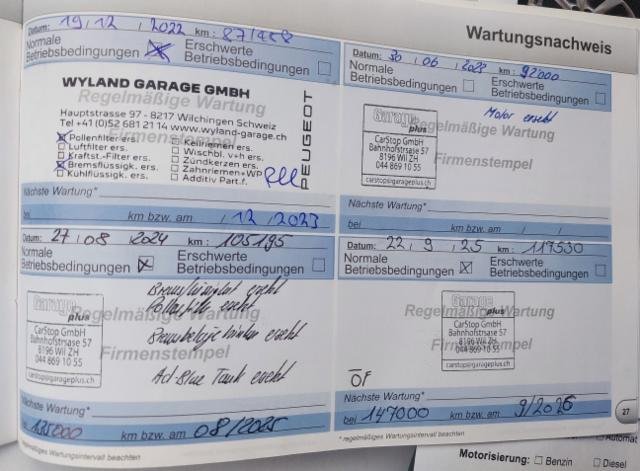 Wartungsnachweis
Datum: 19 / 12 / 2022 km:
Normale Betriebsbedingungen
Erschwerte Betriebsbedingungen
WYLAND GARAGE GMBH
Regelmäßige Wartung
Hauptstrasse 97 - 8217 Wilchingen Schweiz
Tel +41 (0)52 681 21 14 www.wyland-garage.ch
Firmenstempel
PEUGEOT
Pollenfilter ers.
Luftfilter ers.
Kraftst.-Filter ers.
Bremsflüssigk. ers.
Kühlflüssigk. ers.
Keilriemen ers.
Wischbl. v+h ers.
Zündkerzen ers.
Zahnriemen+WP
Additiv Part.f.
Nächste Wartung*
bei km bzw. am / 12 / 2023
Datum: 30 / 06 / 2023 km: 92000
Normale Betriebsbedingungen
Erschwerte Betriebsbedingungen
Motor ersetzt
Garage plus
Regelmäßige Wartung
CarStop GmbH
Bahnhofstrasse 57
8196 Wil ZH
044 869 10 55
Firmenstempel
carstop@garageplus.ch
Nächste Wartung*
bei km bzw. am / /
Datum: 27 / 08 / 2024 km: 105195
Normale Betriebsbedingungen
Erschwerte Betriebsbedingungen
Bremsflüssigkeit ersetzt
Pollenfilter ersetzt
Garage plus
Regelmäßige Wartung
CarStop GmbH
Bahnhofstrasse 57
8196 Wil ZH
044 869 10 55
Bremsbeläge hinten ersetzt
Firmenstempel
carstop@garageplus.ch
Ad Blue Tank ersetzt
Nächste Wartung*
bei km bzw. am 08/2025
* regelmäßiges Wartungsintervall beachten
Datum: 22 / 9 / 25 km: 117530
Normale Betriebsbedingungen
Erschwerte Betriebsbedingungen
Garage plus
Regelmäßige Wartung
CarStop GmbH
Bahnhofstrasse 57
8196 Wil ZH
044 869 10 55
Firmenstempel
carstop@garageplus.ch
ÖF
Nächste Wartung*
bei 147000 km bzw. am 9/2026
* regelmäßiges Wartungsintervall beachten
27
Motorisierung: Benzin Diesel